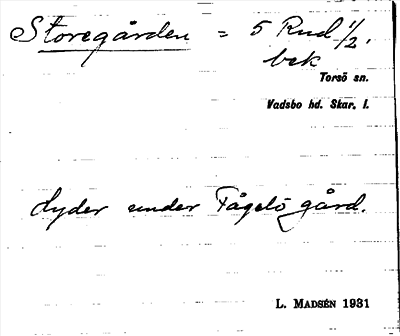 Storegården = 5 Rud 1/2.
bek
Torsö sn.
Vadsbo hd. Skar. l.
lyder under Fågelö gård.
L. MADSÉN 1931